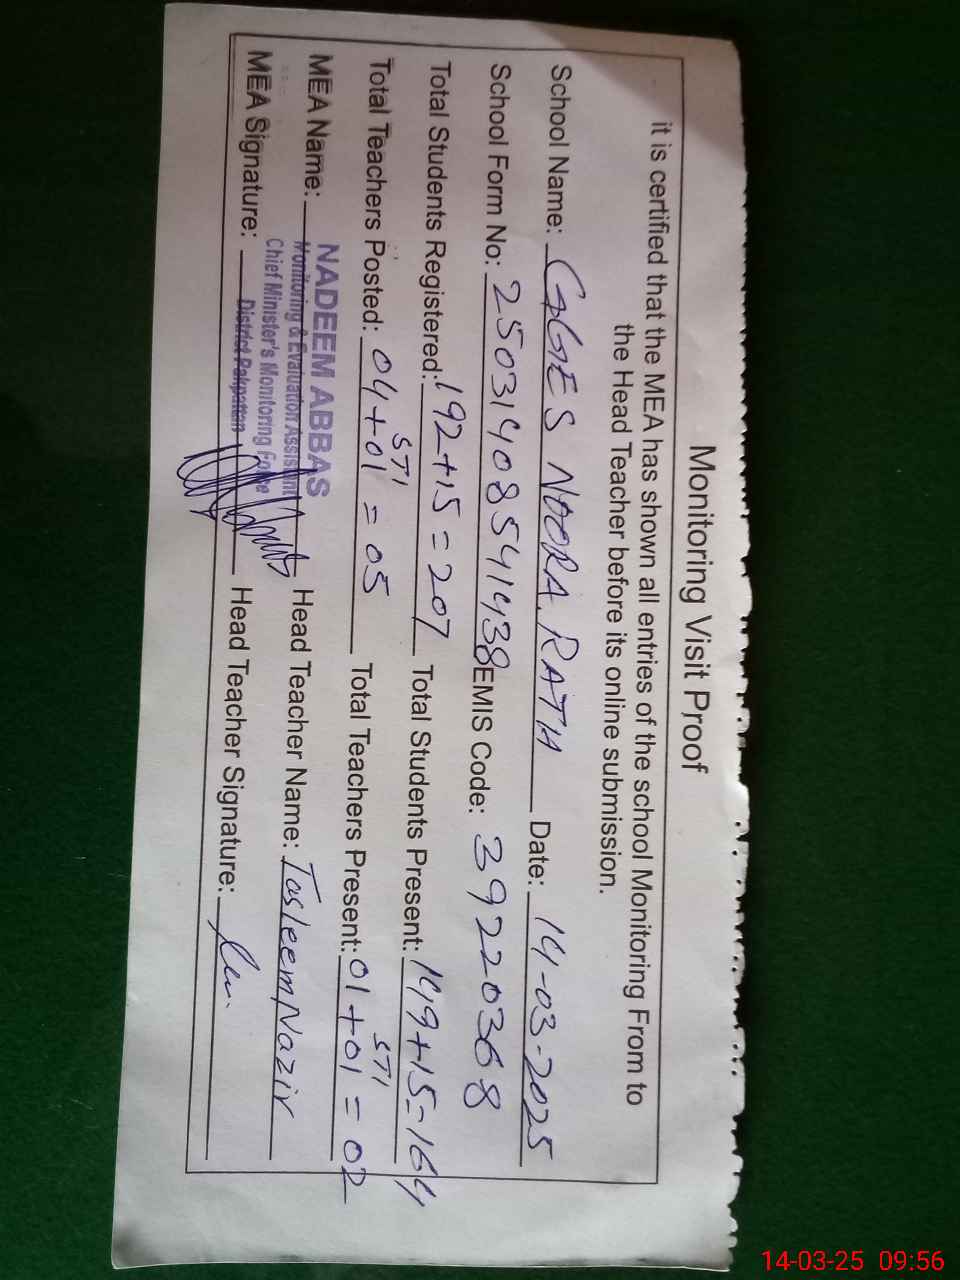 Monitoring Visit Proof
it is certified that the MEA has shown all entries of the school Monitoring From to
the Head Teacher before its online submission.
School Name: GGES NOORA.RATH Date: 14-03-2025
School Form No: 25031408541438 EMIS Code: 39220368
Total Students Registered: 192+15=207 Total Students Present: 149+15=164
STI STI
Total Teachers Posted: 04+01=05 Total Teachers Present: 01+01=02
NADEEM ABBAS
MEA Name: Monitoring & Evaluation Assistant Head Teacher Name: Tasleem Nazir
Chief Minister's Monitoring Force
MEA Signature: District Pakpattan Head Teacher Signature:
14-03-25 09:56